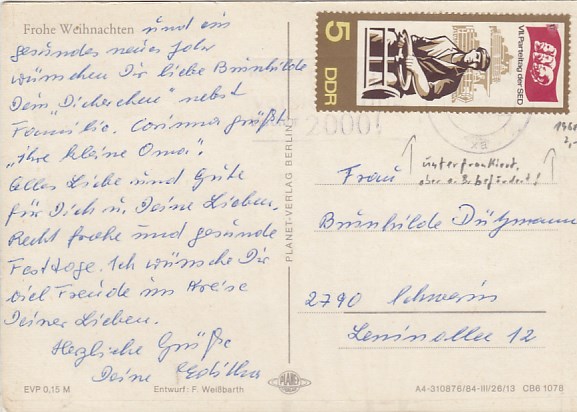 Frohe Weihnachten und ein
gesundes neues Jahr
wünschen Dir liebe Brunhilde
Dein "Dickerchen" nebst
Familie. Corinna grüßt
"ihre kleine Oma".
Alles Liebe und Gute
für Dich u. Deine Lieben.
Recht frohe und gesunde
Festtage. Ich wünsche Dir
viel Freude im Kreise
Deiner Lieben.
Herzliche Grüße
Deine Editha
EVP 0,15 M
Entwurf: F. Weißbarth
PLANET-VERLAG BERLIN
PLANET
5
DDR
VII. Parteitag der SED
2000!
unterfrankiert,
aber o.B. befördert!
Frau
Brunhilde
2790 Schwerin
Leninallee 12
A4-310876/84-III/26/13 CB6 1078